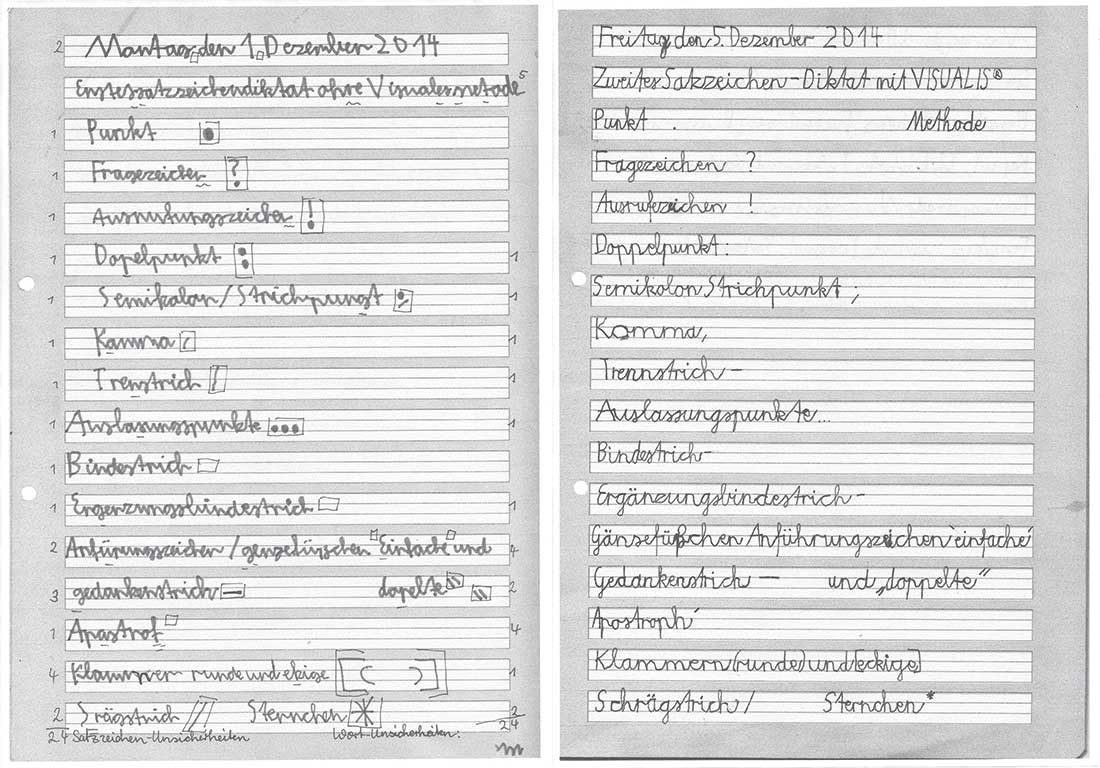 2 Montag, den 1. Dezember 2014
Erstessatzzeichendiktat ohre Visualesmetode 5
1 Punkt .
1 Fragezeichen ?
1 Ausrufungszeichen !
1 Dopelpunkt : 1
1 Semikolon/Strichpungt ; 1
1 Kamma , 1
1 Trenstrich / 1
1 Auslasungspunkte ... 1
1 Bindestrich
1 Ergenzungsbindestrich 1
2 Anfürungszeichen/genzefüschen Einfache und 4
3 gedankenstrich — dopelte 2
1 Apastrof 4
4 Klammern runde und ekige [( )] 1
2 Srägstrich // Sternchen * 2
24 Satzzeichen-Unsicherheiten Wort-Unsicherheiten: 24
Freitag den 5. Dezember 2014
Zweites Satzzeichen-Diktat mit VISUALIS®
Punkt . Methode
Fragezeichen ?
Ausrufezeichen !
Doppelpunkt :
Semikolon Strichpunkt ;
Komma,
Trennstrich -
Auslassungspunkte...
Bindestrich-
Ergänzungsbindestrich-
Gänsefüßchen Anführungszeichen ‘einfache’
Gedankenstrich — und „doppelte“
Apostroph’
Klammern (runde) und [eckige]
Schrägstrich / Sternchen*